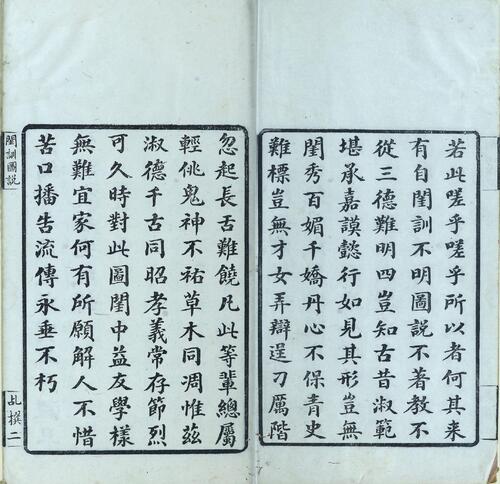 若此嗟乎嗟乎所以者何其来
有自閨訓不明圖說不著教不
從三德難明四豈知古昔淑範
堪承嘉謨懿行如見其形豈無
閨秀百媚千嬌丹心不保青史
難標豈無才女弄辯逞刁厲階
忽起長舌難饒凡此等輩總屬
輕佻鬼神不祐草木同凋惟茲
淑德千古同昭孝義常存節烈
可久時對此圖閨中益友學樣
無難宜家何有所願解人不惜
苦口播告流傳永垂不朽
閨訓圖說
乩撰 二